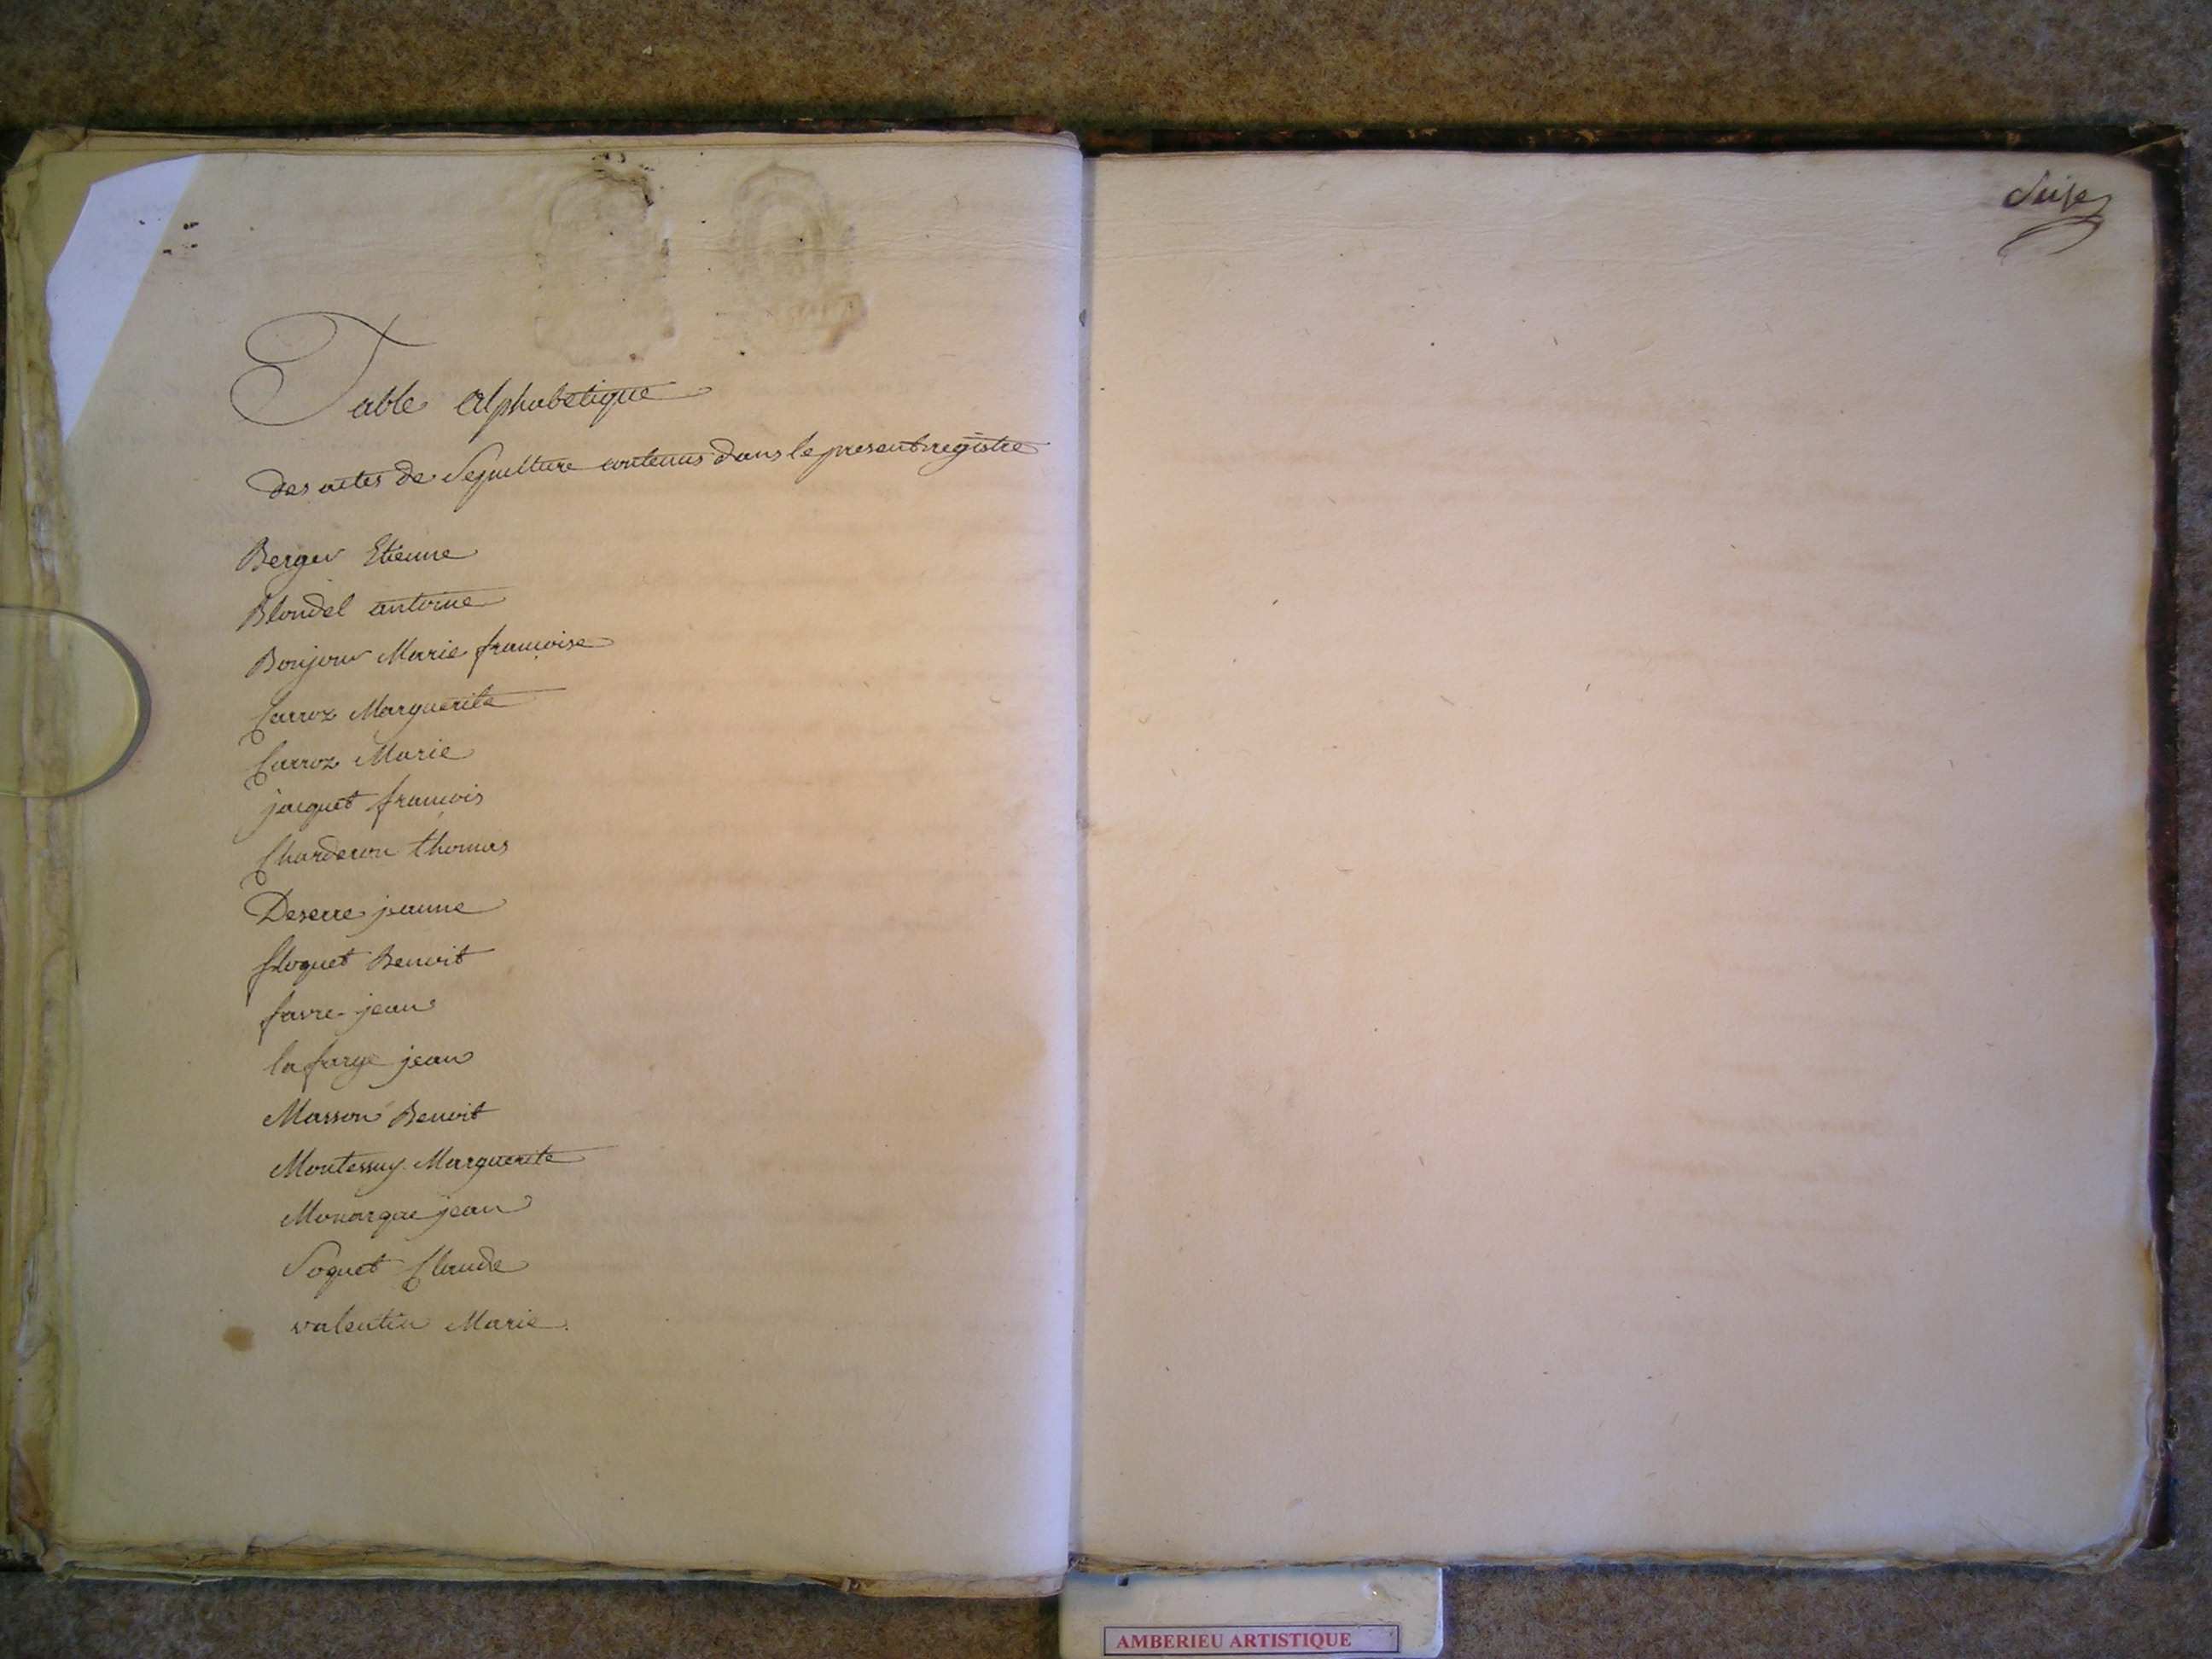 Table alphabetique
des actes de Sepulture contenus dans le present registre
Berger Etienne
Blondel antoine
Bonjour Marie françoise
Carroz Marguerite
Carroz Marie
jacquet françois
Charderon thomas
Deserre jeanne
floquet Benoit
favre jean
lafarge jean
Masson Benoit
Montessuy Marguerite
Monarque jean
Soquet Claude
valentin Marie.
Seize
AMBERIEU ARTISTIQUE